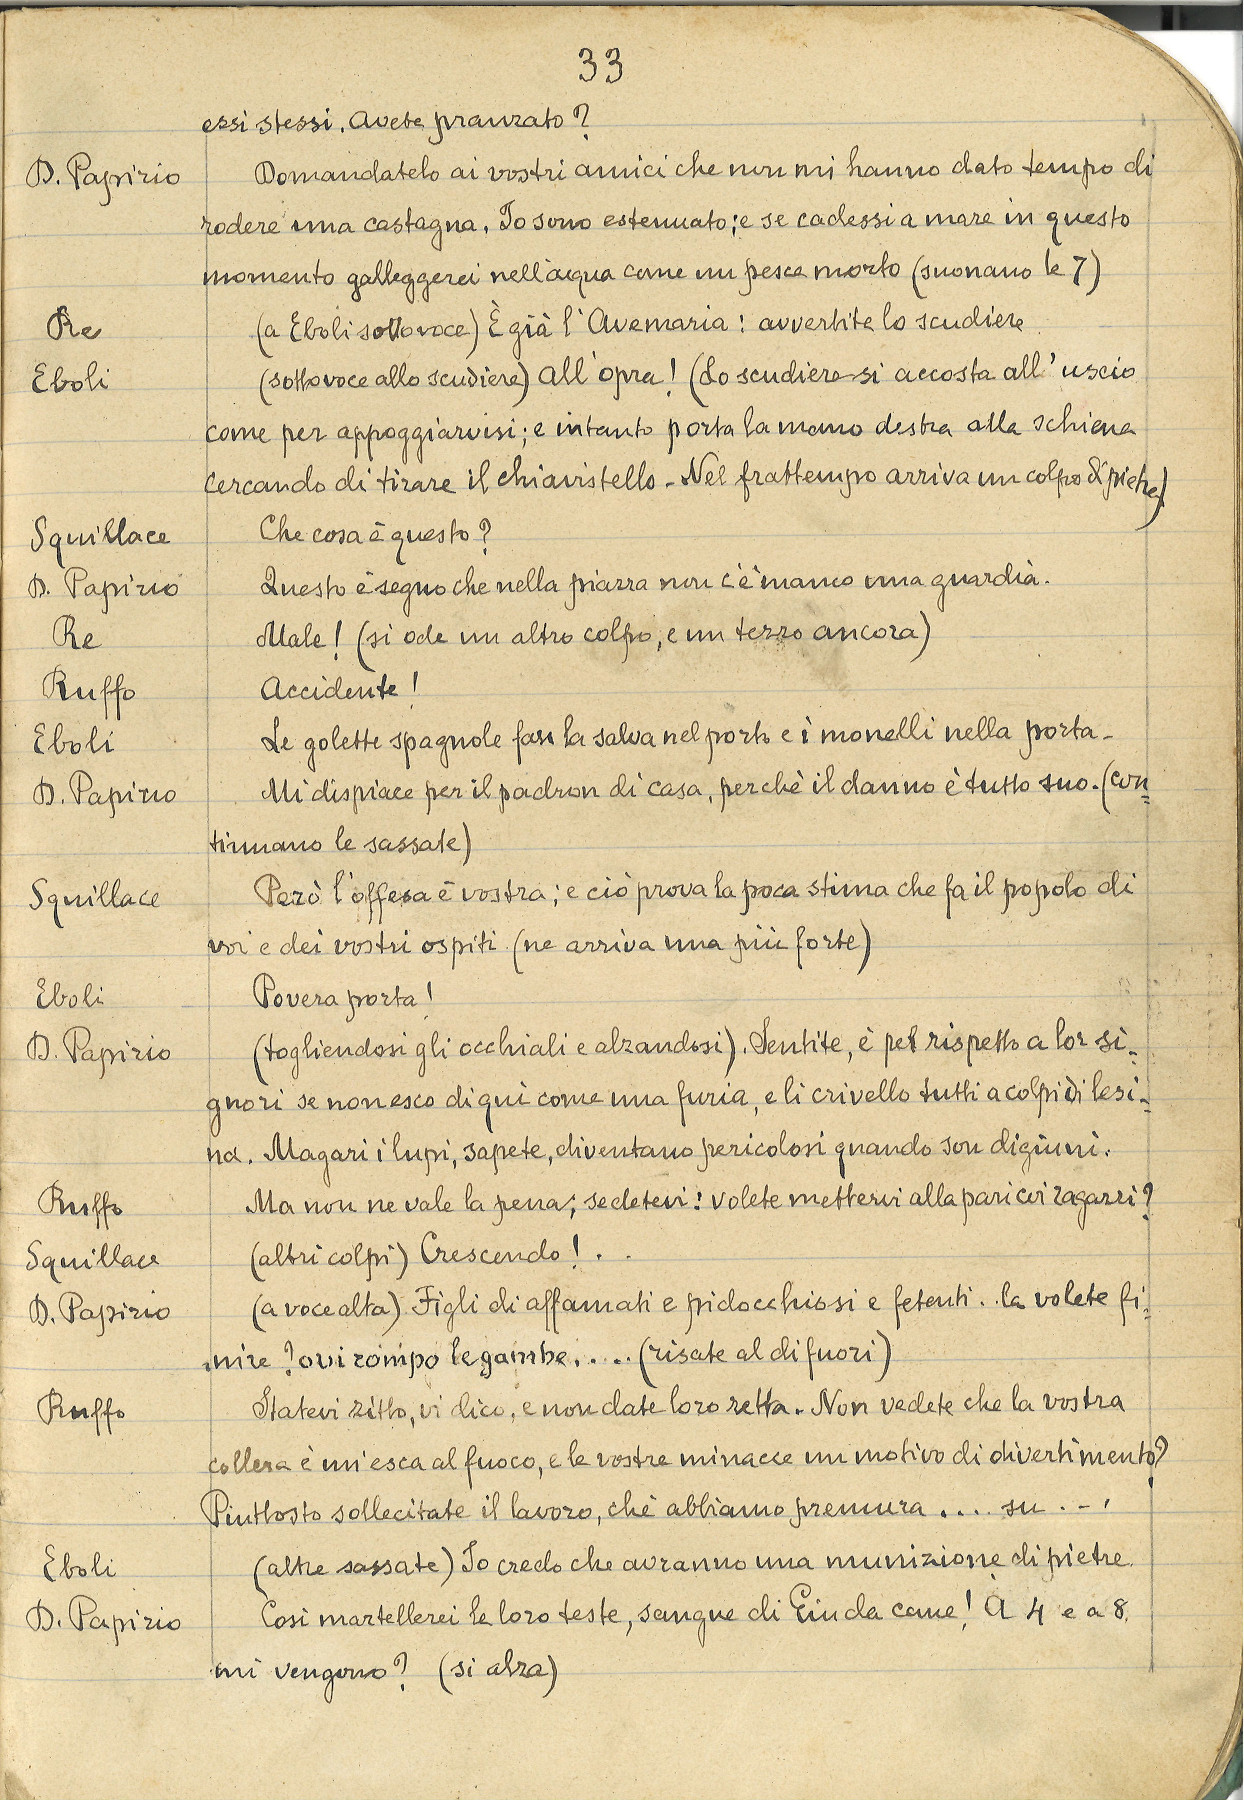 33
essi stessi. Avete pranzato?
D. Papirio Domandatelo ai vostri amici che non mi hanno dato tempo di
rodere una castagna. Io sono estenuato; e se cadessi a mare in questo
momento galleggerei nell'acqua come un pesce morto (suonano le 7)
Re (a Eboli sottovoce) È già l'Avemaria: avvertite lo scudiere
Eboli (sottovoce allo scudiere) All'opra! (Lo scudiere si accosta all'uscio
come per appoggiarvisi; e intanto porta la mano destra alla schiena
cercando di tirare il chiavistello - Nel frattempo arriva un colpo di pietre)
Squillace Che cosa è questo?
D. Papirio Questo è segno che nella piazza non c'è manco una guardia.
Re Male! (si ode un altro colpo, e un terzo ancora)
Ruffo Accidente!
Eboli Le golette spagnole fan la salva nel porto e i monelli nella porta -
D. Papirio Mi dispiace per il padron di casa, perchè il danno è tutto suo. (con=
tinuano le sassate)
Squillace Però l'offesa è vostra; e ciò prova la poca stima che fa il popolo di
voi e dei vostri ospiti (ne arriva una più forte)
Eboli Povera porta!
D. Papirio (togliendosi gli occhiali e alzandosi). Sentite, è pel rispetto a lor si=
gnori se non esco di qui come una furia, e li crivello tutti a colpi di lesi=
na. Magari i lupi, sapete, diventano pericolosi quando son digiuni.
Ruffo Ma non ne vale la pena; sedetevi: volete mettervi alla pari coi ragazzi?
Squillace (altri colpi) Crescendo! . .
D. Papirio (a voce alta) Figli di affamati e pidocchiosi e fetenti.. la volete fi=
nire? o vi rompo le gambe. . .. (risate al di fuori)
Ruffo Statevi zitto, vi dico, e non date loro retta. Non vedete che la vostra
collera è un'esca al fuoco, e le vostre minacce un motivo di divertimento?
Piuttosto sollecitate il lavoro, chè abbiamo premura .... su . - '
Eboli (altre sassate) Io credo che avranno una munizione di pietre.
D. Papirio Così martellerei le loro teste, sangue di Giuda cane! A 4 e a 8.
mi vengono? (si alza)